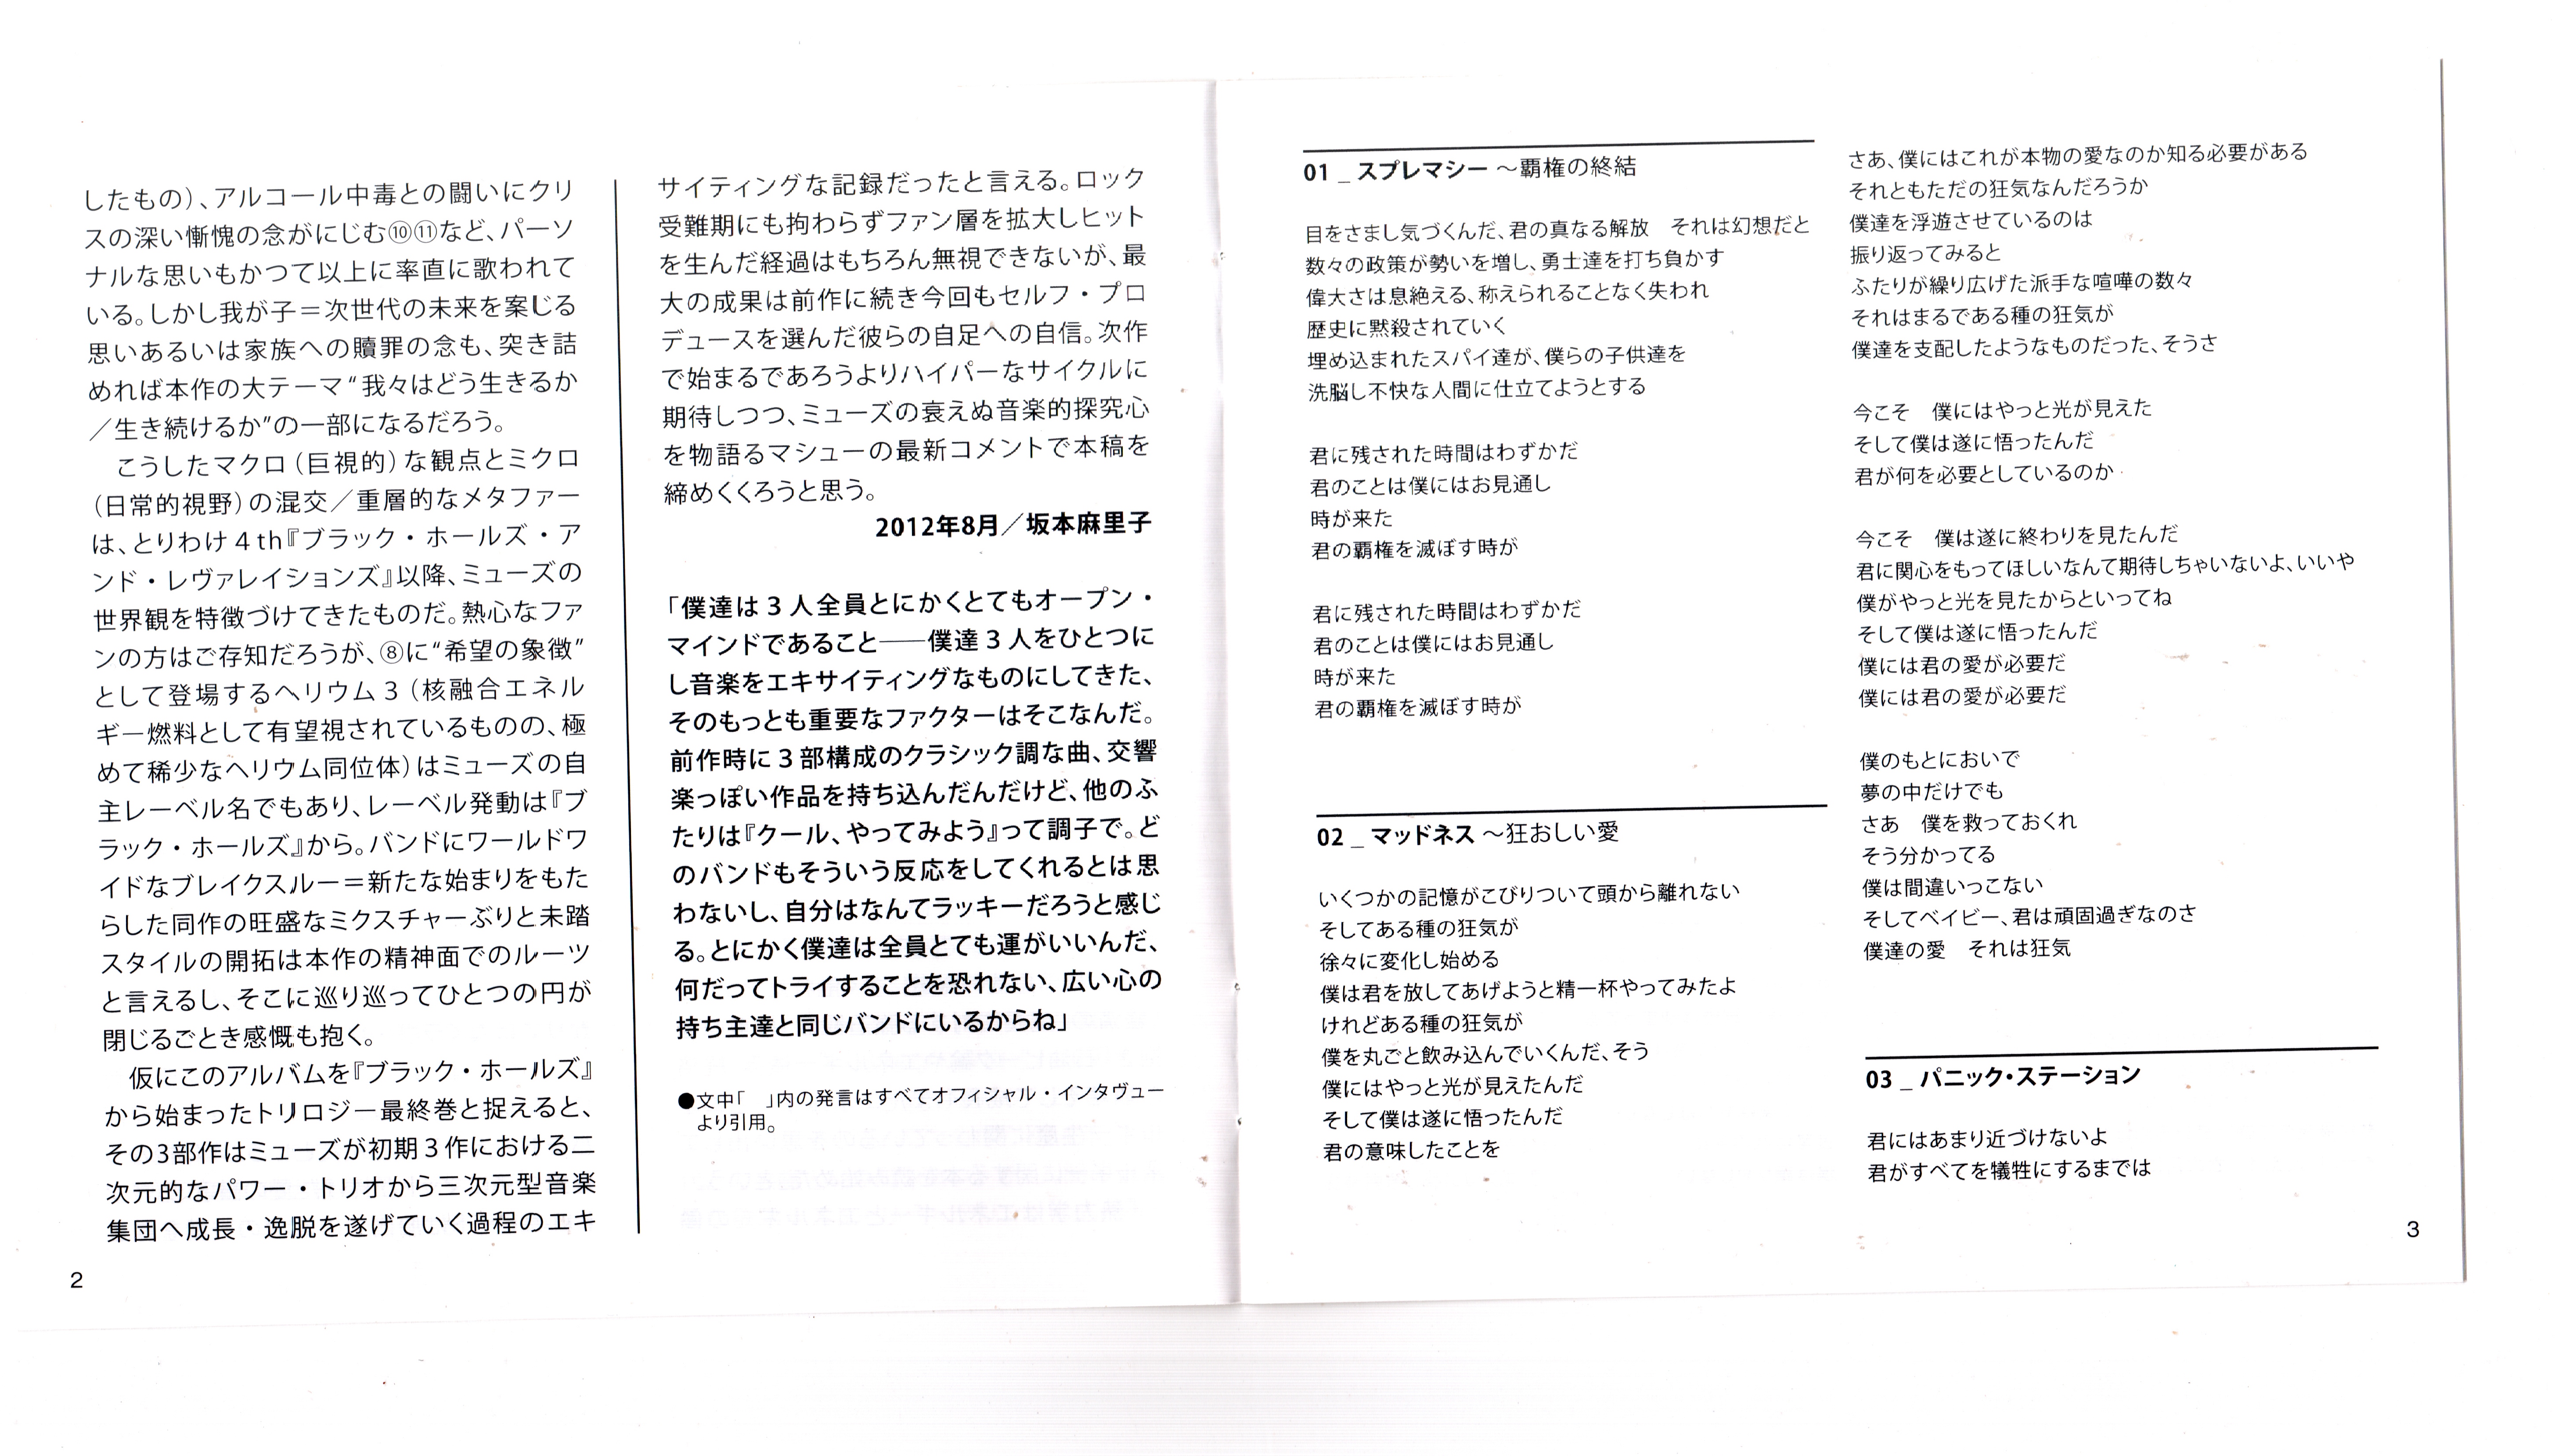 したもの)、アルコール中毒との闘いにクリ
スの深い慚愧の念がにじむ⑩⑪など、パーソ
ナルな思いもかつて以上に率直に歌われて
いる。しかし我が子＝次世代の未来を案じる
思いあるいは家族への贖罪の念も、突き詰
めれば本作の大テーマ“我々はどう生きるか
／生き続けるか”の一部になるだろう。
こうしたマクロ(巨視的)な観点とミクロ
(日常的視野)の混交／重層的なメタファー
は、とりわけ4th『ブラック・ホールズ・ア
ンド・レヴァレイションズ』以降、ミューズの
世界観を特徴づけてきたものだ。熱心なファ
ンの方はご存知だろうが、⑧に“希望の象徴”
として登場するヘリウム3(核融合エネル
ギー燃料として有望視されているものの、極
めて稀少なヘリウム同位体)はミューズの自
主レーベル名でもあり、レーベル発動は『ブ
ラック・ホールズ』から。バンドにワールドワ
イドなブレイクスルー＝新たな始まりをもた
らした同作の旺盛なミクスチャーぶりと未踏
スタイルの開拓は本作の精神面でのルーツ
と言えるし、そこに巡り巡ってひとつの円が
閉じるごとき感慨も抱く。
仮にこのアルバムを『ブラック・ホールズ』
から始まったトリロジー最終巻と捉えると、
その3部作はミューズが初期3作における二
次元的なパワー・トリオから三次元型音楽
集団へ成長・逸脱を遂げていく過程のエキ
2
サイティングな記録だったと言える。ロック
受難期にも拘わらずファン層を拡大しヒット
を生んだ経過はもちろん無視できないが、最
大の成果は前作に続き今回もセルフ・プロ
デュースを選んだ彼らの自足への自信。次作
で始まるであろうよりハイパーなサイクルに
期待しつつ、ミューズの衰えぬ音楽的探究心
を物語るマシューの最新コメントで本稿を
締めくくろうと思う。
2012年8月／坂本麻里子
「僕達は3人全員とにかくとてもオープン・
マインドであること──僕達3人をひとつに
し音楽をエキサイティングなものにしてきた、
そのもっとも重要なファクターはそこなんだ。
前作時に3部構成のクラシック調な曲、交響
楽っぽい作品を持ち込んだんだけど、他のふ
たりは『クール、やってみよう』って調子で。ど
のバンドもそういう反応をしてくれるとは思
わないし、自分はなんてラッキーだろうと感じ
る。とにかく僕達は全員とても運がいいんだ、
何だってトライすることを恐れない、広い心の
持ち主達と同じバンドにいるからね」
●文中「　」内の発言はすべてオフィシャル・インタヴュー
より引用。
01 _ スプレマシー ～覇権の終結
目をさまし気づくんだ、君の真なる解放　それは幻想だと
数々の政策が勢いを増し、勇士達を打ち負かす
偉大さは息絶える、称えられることなく失われ
歴史に黙殺されていく
埋め込まれたスパイ達が、僕らの子供達を
洗脳し不快な人間に仕立てようとする
君に残された時間はわずかだ
君のことは僕にはお見通し
時が来た
君の覇権を滅ぼす時が
君に残された時間はわずかだ
君のことは僕にはお見通し
時が来た
君の覇権を滅ぼす時が
02 _ マッドネス ～狂おしい愛
いくつかの記憶がこびりついて頭から離れない
そしてある種の狂気が
徐々に変化し始める
僕は君を放してあげようと精一杯やってみたよ
けれどある種の狂気が
僕を丸ごと飲み込んでいくんだ、そう
僕にはやっと光が見えたんだ
そして僕は遂に悟ったんだ
君の意味したことを
さあ、僕にはこれが本物の愛なのか知る必要がある
それともただの狂気なんだろうか
僕達を浮遊させているのは
振り返ってみると
ふたりが繰り広げた派手な喧嘩の数々
それはまるである種の狂気が
僕達を支配したようなものだった、そうさ
今こそ　僕にはやっと光が見えた
そして僕は遂に悟ったんだ
君が何を必要としているのか
今こそ　僕は遂に終わりを見たんだ
君に関心をもってほしいなんて期待しちゃいないよ、いいや
僕がやっと光を見たからといってね
そして僕は遂に悟ったんだ
僕には君の愛が必要だ
僕には君の愛が必要だ
僕のもとにおいで
夢の中だけでも
さあ　僕を救っておくれ
そう分かってる
僕は間違いっこない
そしてベイビー、君は頑固過ぎなのさ
僕達の愛　それは狂気
03 _ パニック・ステーション
君にはあまり近づけないよ
君がすべてを犠牲にするまでは
3